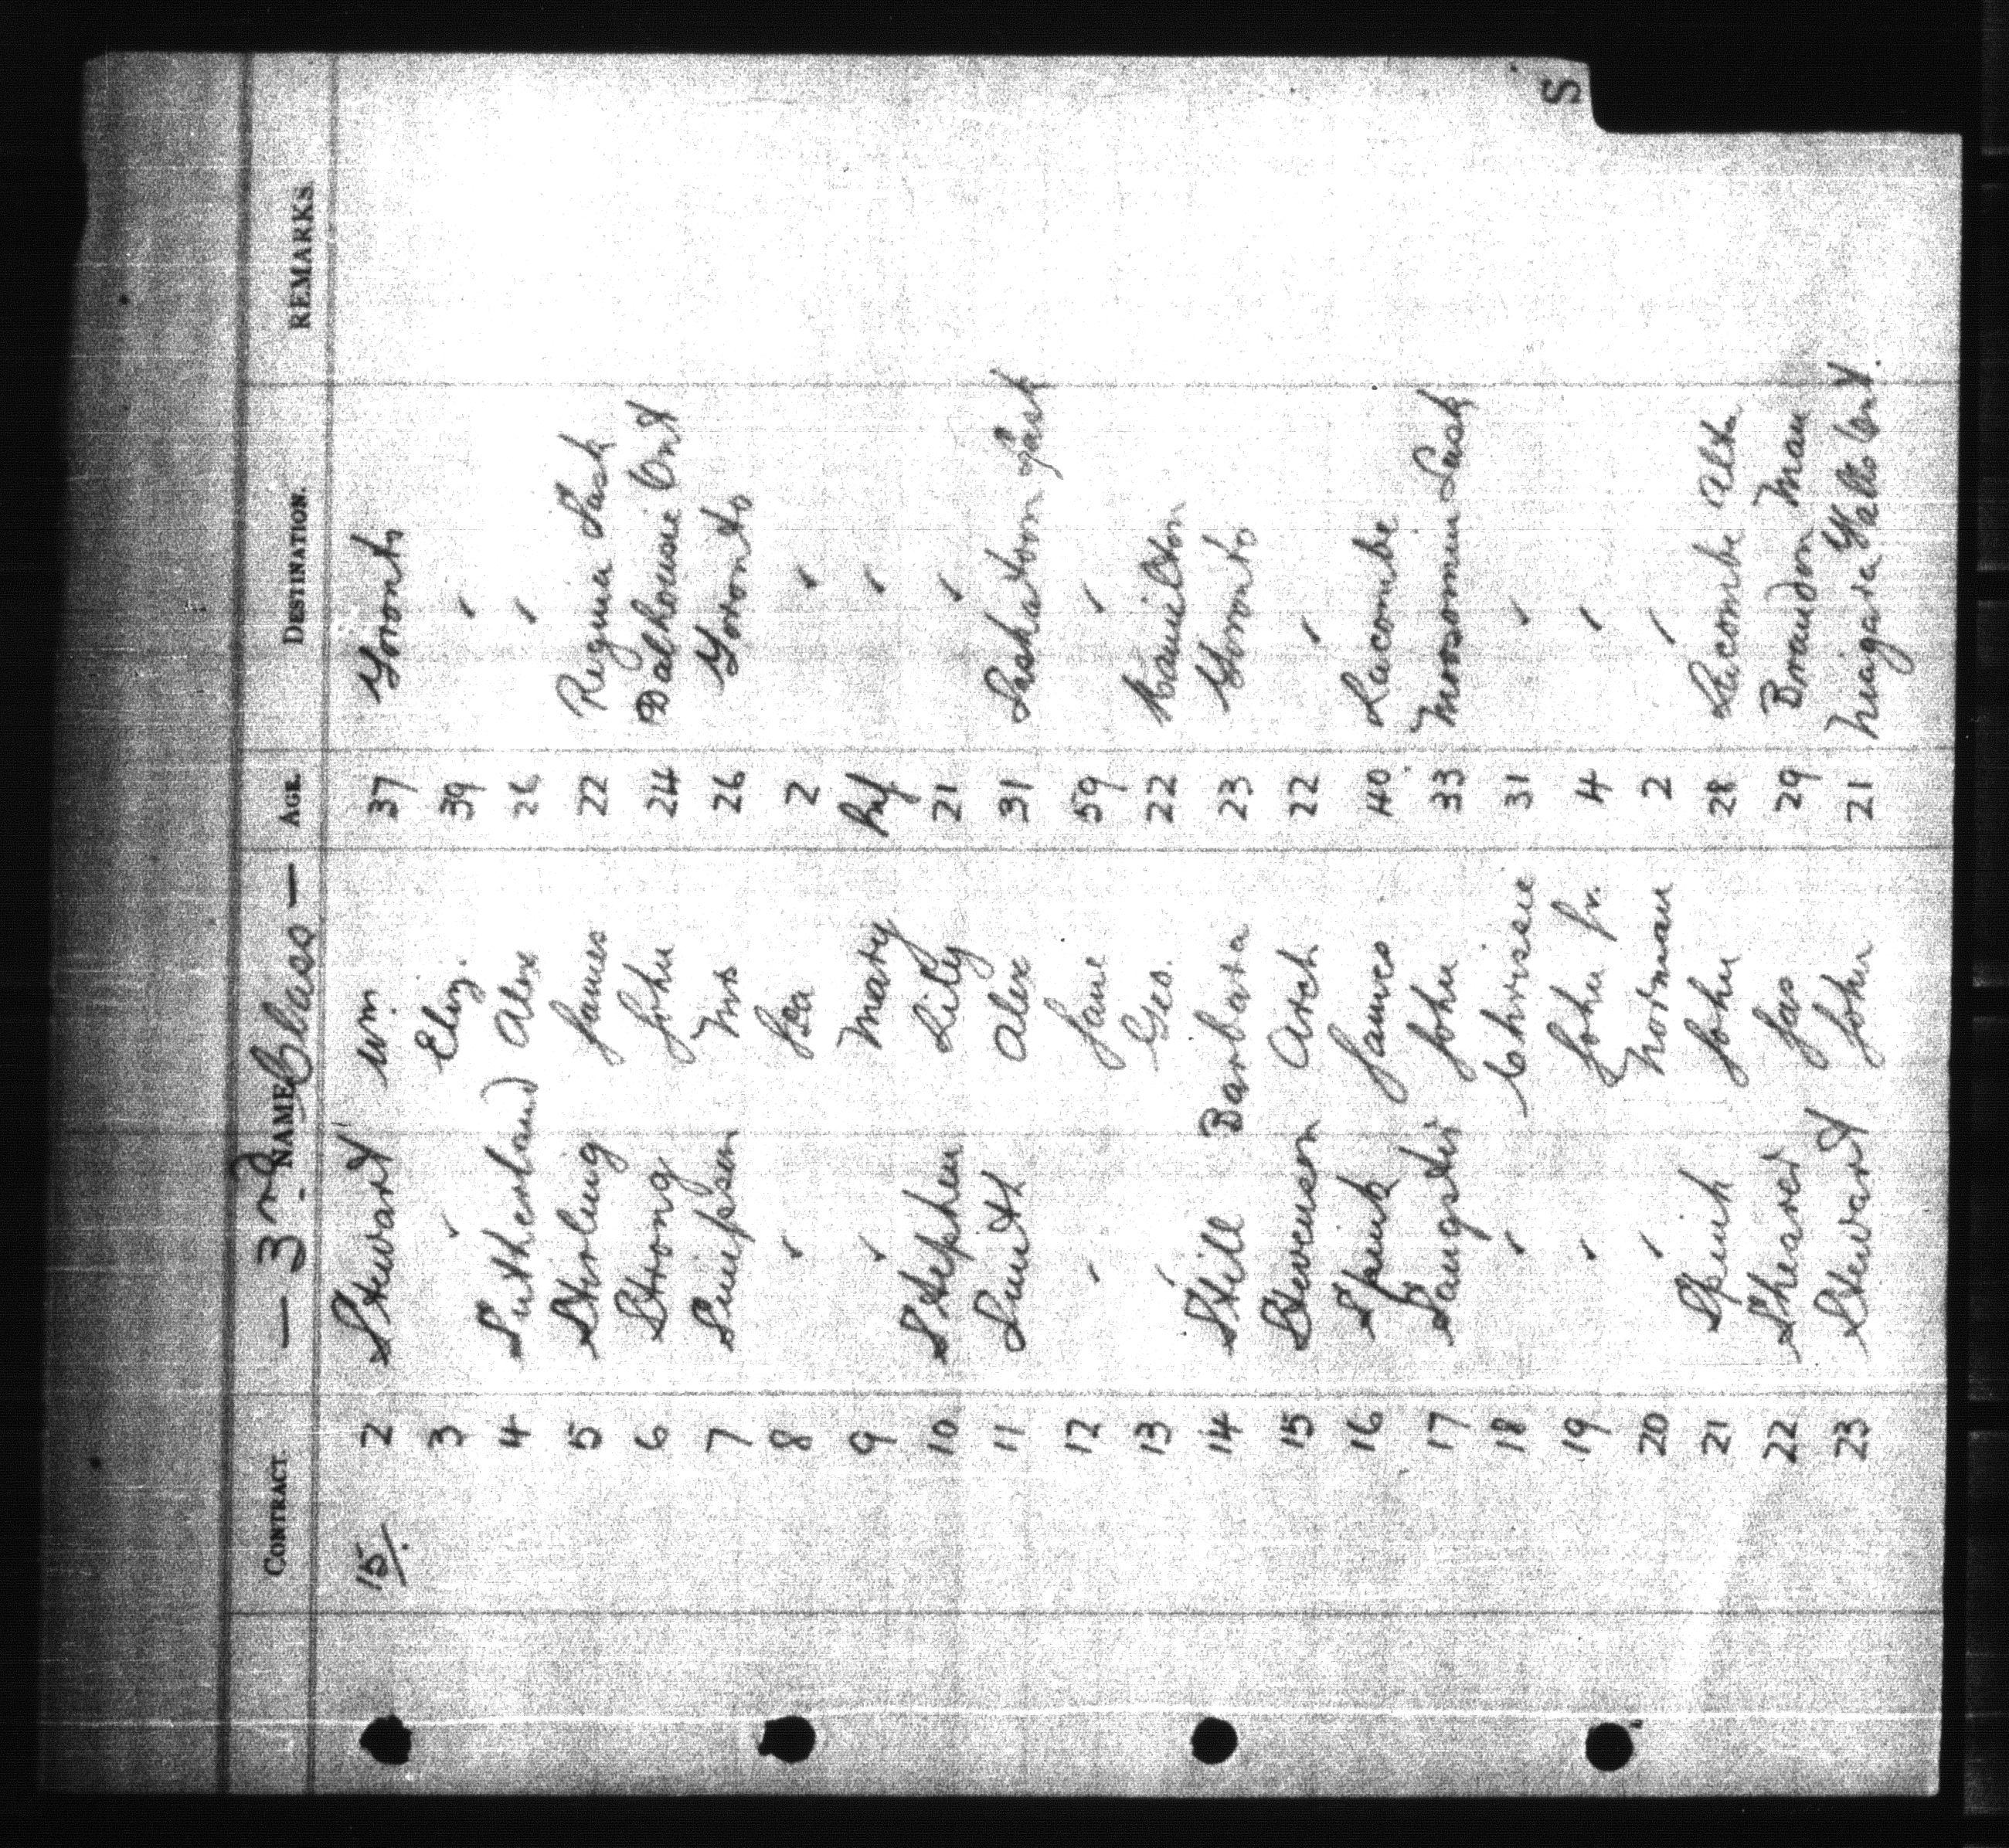 S
— 3rd. Class —
CONTRACT. NAME DESTINATION. AGE REMARKS.
15/. 2 Stewart Wm. 37 Toronto
3 " Eliz. 39 "
4 Sutherland Alex 26 "
5 Stirling James 22 Regina Sask
6 Strong John 24 Dalhousie Ont
7 Simpson Mrs 26 Toronto
8 " 2 "
9 " Mary Inf "
10 Stephen Lily 21 "
11 Smith Alex 31 Saskatoon Sask
12 " Jane 59 "
13 " Geo. 22 Hamilton
14 Still Barbara 23 Toronto
15 Stevenson Arch 22 "
16 Spink James 40 Lacombe
17 Sangster John 33 Moosomin Sask
18 " Chrissie 31 "
19 " John Jr. 4 "
20 " Norman 2 "
21 Spink John 28 Lacombe Alta
22 Shearer Jas 29 Brandon Man
23 Stewart John 21 Niagara Falls Ont.